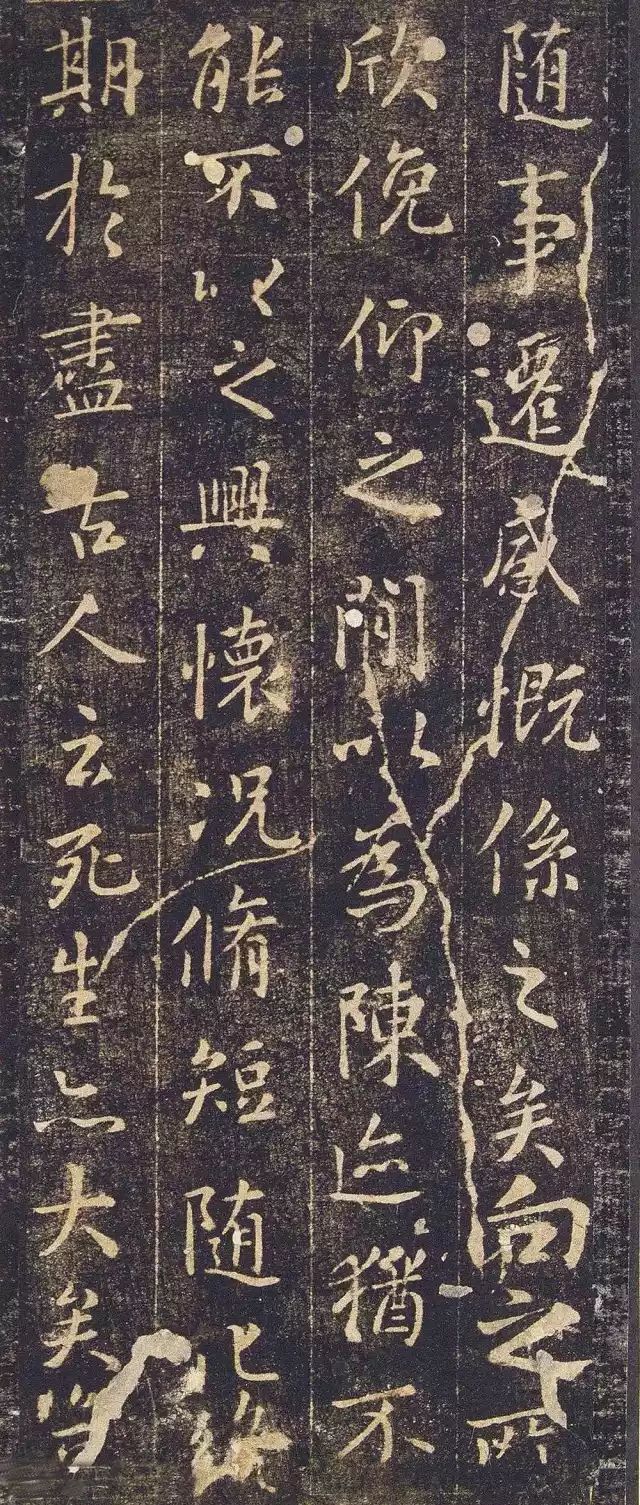 随事遷感慨係之矣向之所
欣俛仰之間以為陳迹猶不
能不以之興懷況脩短随化終
期於盡古人云死生亦大矣豈